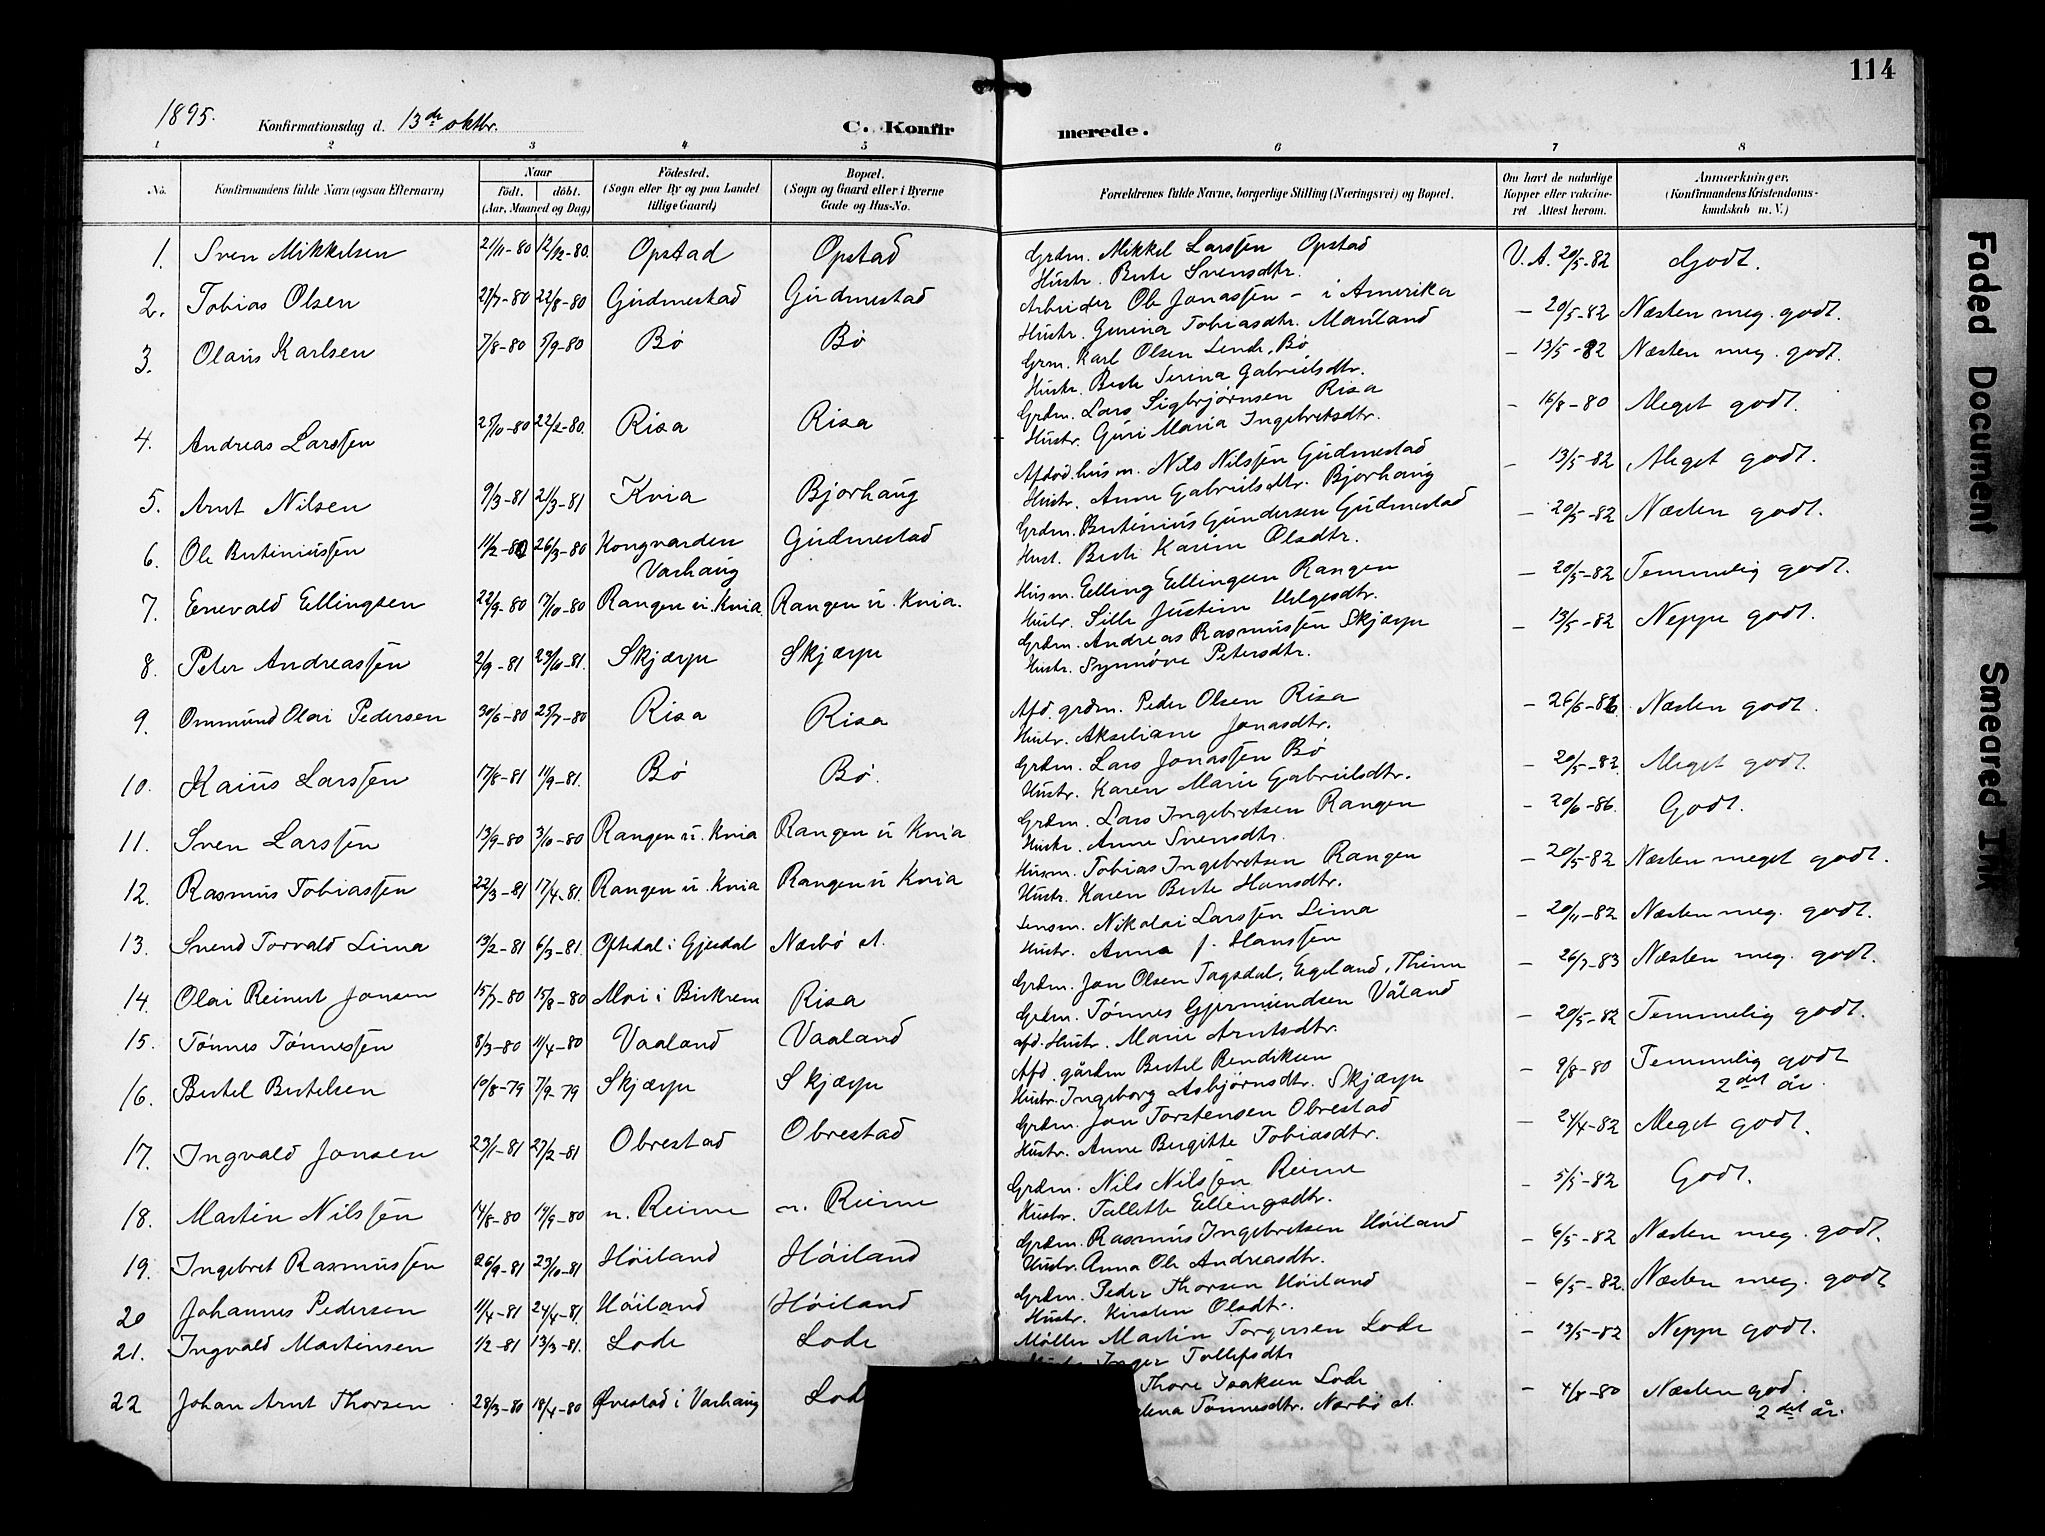 114
1895. Konfirmationsdag d. 13de oktbr. C. Konfirmerede.
1 2 3 4 5 6 7 8
No. Konfirmandens fulde Navn (ogsaa Efternavn) Naar Født. døbt. (Aar, Maaned og Dag) Fødested. (Sogn eller By og paa Landet tillige Gaard) Bopæl. (Sogn og Gaard eller i Byerne Gade og Hus-No. Forældrenes fulde Navne, borgerlige Stilling (Næringsvei) og Bopæl. Om havt de naturlige Kopper eller vakcineret Attest herom. Anmærkninger. (Konfirmandens Kristendomskundskab m. V.)
1. Sven Mikkelsen 21/11-80 12/12-80. Opstad Opstad Grdm. Mikkel Larssen Opstad V.A. 20/5-82 Godt.
Hustr. Berte Svensdtr.
2. Tobias Olsen 21/7-80 22/8-80 Gudmestad Gudmestad Arbeider Ole Jonassen - i Amerika - 20/5-82 Næsten meg. godt.
Hustr. Gurina Tobiasdtr. Mauland
3. Olaus Karlsen 7/8-80 5/9-80 Bø Bø Grm. Karl Olsen Lende, Bø - 13/5-82 Næsten meg. godt.
Hustr. Berte Serina Gabrielsdtr.
4. Andreas Larssen 25/10-80 22/12-80. Risa Risa Grdm. Lars Sigbrjørnsen Risa - 16/8-80 Meget godt.
Hustr. Guri Maria Ingebretsdtr.
5. Arnt Nilsen 9/3-81 21/3-81 Kvia Bjorhaug Afdød husm. Nils Nilssen Gudmestad - 13/5-82 Meget godt.
Hustr. Anne Gabrielsdtr. Bjorhaug
6. Ole Bertiniussen 11/2-80 26/3-80 Kongvarden Varhaug Gudmestad Grdm. Bertinius Gundersen Gudmestad - 20/5-82 Næsten godt.
Hust. Berte Karine Olsdtr.
7. Enevald Ellingsen 22/9-80 17/10-80 Rangen u. Kvia Rangen u. Kvia. Husm. Elling Ellingsen Rangen - 20/5-82 Temmelig godt.
Hustr. Sille Justine Helgesdtr.
8. Peter Andreassen 2/9-81 23/10-81. Skjærpe Skjærpe Grdm. Andreas Rasmussen Skjærpe - 13/5-82 Neppe godt.
Hustr. Synnøve Petersdtr.
9. Ommund Olai Pedersen 30/6-80 25/7-80 Risa Risa Afd. grdm. Peder Olsen Risa - 26/6-86. Næsten godt.
Hustr. Akseliane Jonasdtr.
10. Kaius Larssen 17/8-81 11/9-81. Bø Bø. Grdm. Lars Jonassen Bø - 20/5-82. Meget godt.
Hustr. Karen Marie Gabrielsdtr.
11. Sven Larssen 13/9-80 3/10-80 Rangen u. Kvia Rangen u Kvia Grdm. Lars Ingebretsen Rangen - 20/6-86. Godt.
Hustr. Anne Svensdtr.
12. Rasmus Tobiassen 22/3-81 17/4-81. Rangen u. Kvia Rangen u Kvia Husm. Tobias Ingebretsen Rangen - 20/5-82 Næsten meget godt.
Hustr. Karen Berte Hansdtr.
13. Svend Torvald Lima 13/2-81 6/3-81. Oftedal i Gjesdal Nærbø st. Lensm. Nikolai Larssen Lima - 20/11-82 Næsten meg. godt.
Hustr. Anna f. Hanssen
14. Olai Reinert Jonsen 15/7-80 15/8-80 Moi i Birkrem Risa Grdm. Jon Olsen Tagsdal, Egeland, Thime - 26/7-83 Næsten meg. godt.
15. Tønnes Tønnessen 8/3-80 11/4-80 Vaaland Vaaland Grdm. Tønnes Gjermundsen Våland - 20/5-82 Temmelig godt.
afd. Hustr. Marie Arntsdtr.
16. Bertel Bertelsen 10/8-79 7/9-79 Skjærpe Skjærpe Afd. gårdm Bertel Bendiksen - 9/8-80 Temmelig godt 2det år.
Hustr. Ingeborg Asbjørnsdtr. Skjærpe
17. Ingvald Jonsen 23/1-81 27/2-81 Obrestad Obrestad Grdm. Jon Torstensen Obrestad - 24/4-82 Meget godt.
Hustr. Anne Birgitte Tobiasdtr.
18. Martin Nilssen 14/8-80 19/9-80 n. Reime n. Reime Grdm. Nils Nilssen Reime - 5/5-82 Godt.
Hustr. Tallette Ellingsdtr.
19. Ingebret Rasmussen 26/9-81 23/10-81 Høiland Høiland Grdm. Rasmus Ingebretsen Høiland - 6/5-82 Næsten meg. godt.
Hustr. Anna Ole Andreasdtr.
20 Johannes Pedersen 11/4-81 24/4-81. Høiland Høiland Grdm. Peder Thorsen Høiland - 6/5-82. Næsten meg. godt
Hustr. Kirsten Olsdtr.
21. Ingvald Martinsen 1/2-81 13/3-81. Lode Lode Møller Martin Torgersen Lode - 13/5-82 Neppe godt.
Hustr. Inger Tollefsdtr
22 Johan Arnt Thorsen 28/3-80 18/4-80 Øvestad i Varhaug Lod Thore Isaksen Lode - 4/8-80 Næsten god. 2det år.
lena Tønnesdtr. Nærbø st.
Faded Document
Smeared Ink